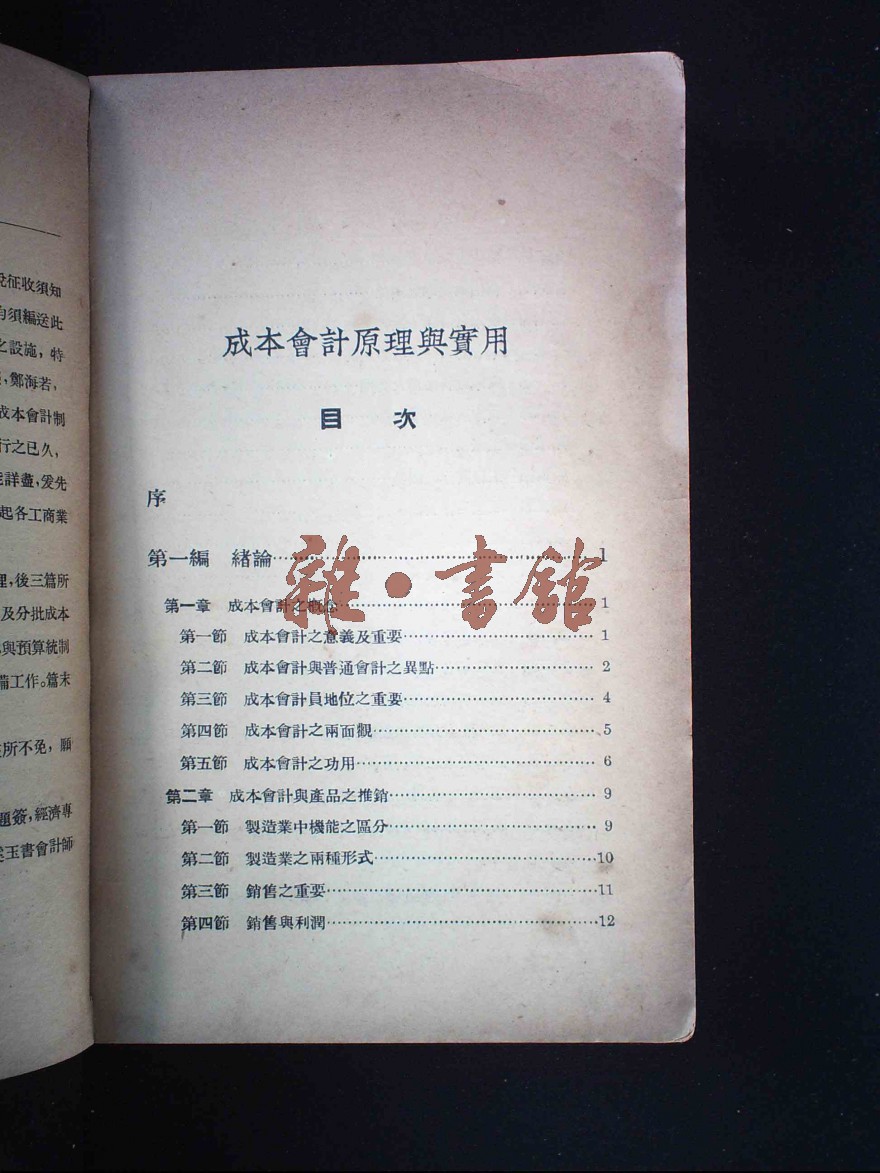 稅征收須知
均須編送此
之設施，特
，鄭海若，
成本會計制
行之已久，
詳盡，爰先
起各工商業
理，後三篇所
及分批成本
與預算統制
備工作。篇末
所不免，願
題簽，經濟專
玉書會計師
成本會計原理與實用
目 次
序
第一編 緒論……1
第一章 成本會計之概念……1
第一節 成本會計之意義及重要……1
第二節 成本會計與普通會計之異點……2
第三節 成本會計員地位之重要……4
第四節 成本會計之兩面觀……5
第五節 成本會計之功用……6
第二章 成本會計與產品之推銷……9
第一節 製造業中機能之區分……9
第二節 製造業之兩種形式……10
第三節 銷售之重要……11
第四節 銷售與利潤……12
雜·書館